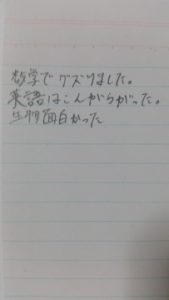 数学でグズりました。
英語はこんがらがった。
生物面白かった